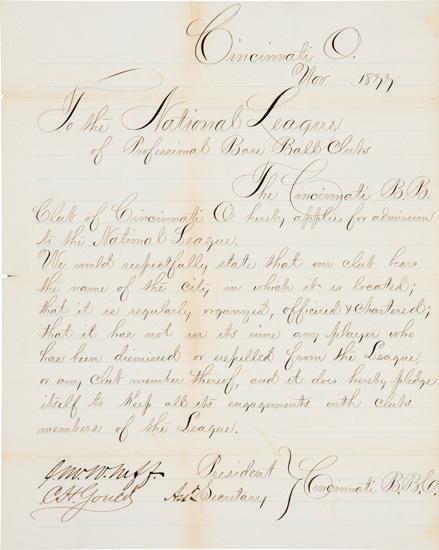 Cincinnati O.
Nov. 1877
To the National League
of Professional Base Ball Clubs
The Cincinnati B.B.
Club of Cincinnati O. hereby applies for admission
to the National League.
We would respectfully state that our club bears
the name of the city in which it is located;
that it is regularly organized, officered & chartered;
that it has not in its nine any player who
has been dismissed or expelled from the League
or any club member thereof, and it does hereby pledge
itself to keep all its engagements with clubs
members of the League.
J.M.W. Neff. President
C.H. Gould Ast Secretary } Cincinnati B.B.C.